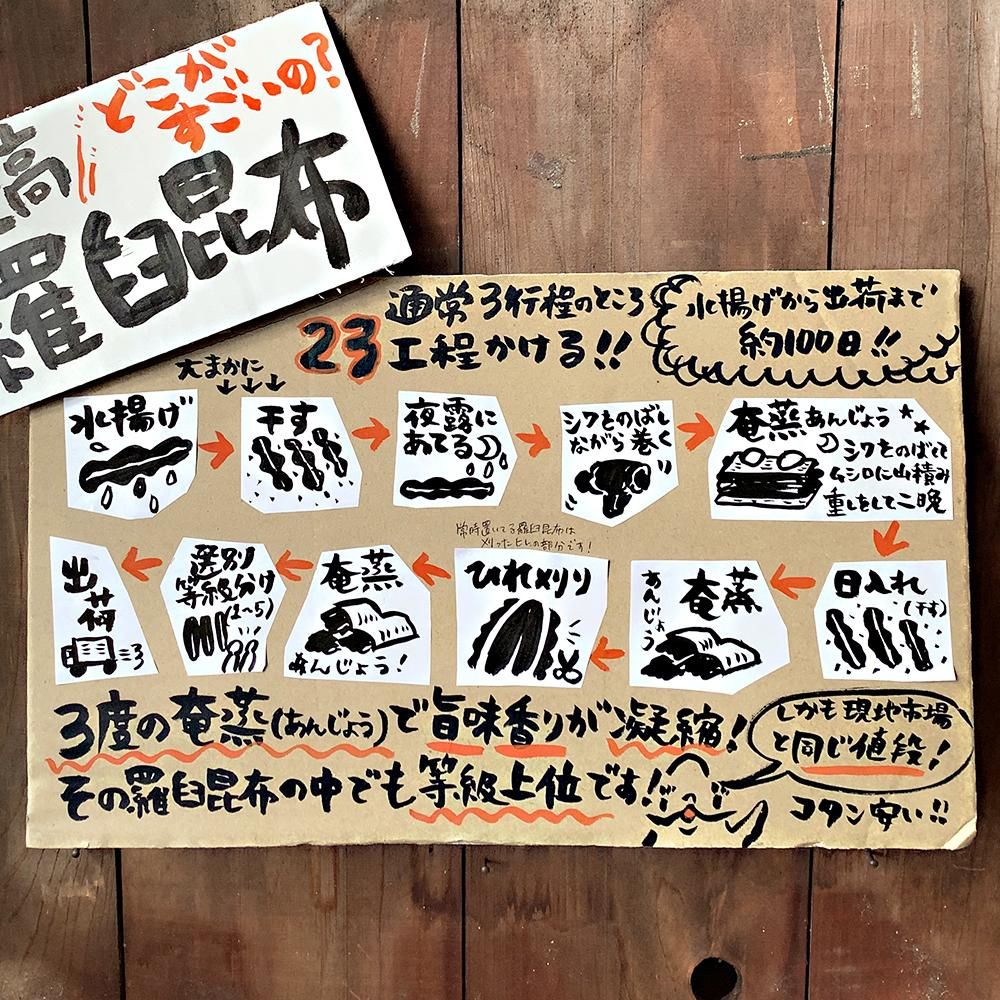 どこが
すごいの?
高
羅臼昆布
通常3行程のところ
23工程かける!!
水揚げから出荷まで
約100日!!
大まかに
水揚げ
干す
夜露に
あてる
シワをのばし
ながら巻く
奄蒸あんじょう
シワをのばして
ムシロに山積み
重しをして二晩
日入れ
(干す)
奄蒸
あんじょう
ひれメリリ
常時置いてる羅臼昆布は
刈ったヒレの部分です!
奄蒸
あんじょう!
選別
等級分け
(1~5)
出荷
3度の奄蒸(あんじょう)で旨味香りが凝縮!
その羅臼昆布の中でも等級上位です!
しかも現地市場
と同じ値段!
コタン安い!!